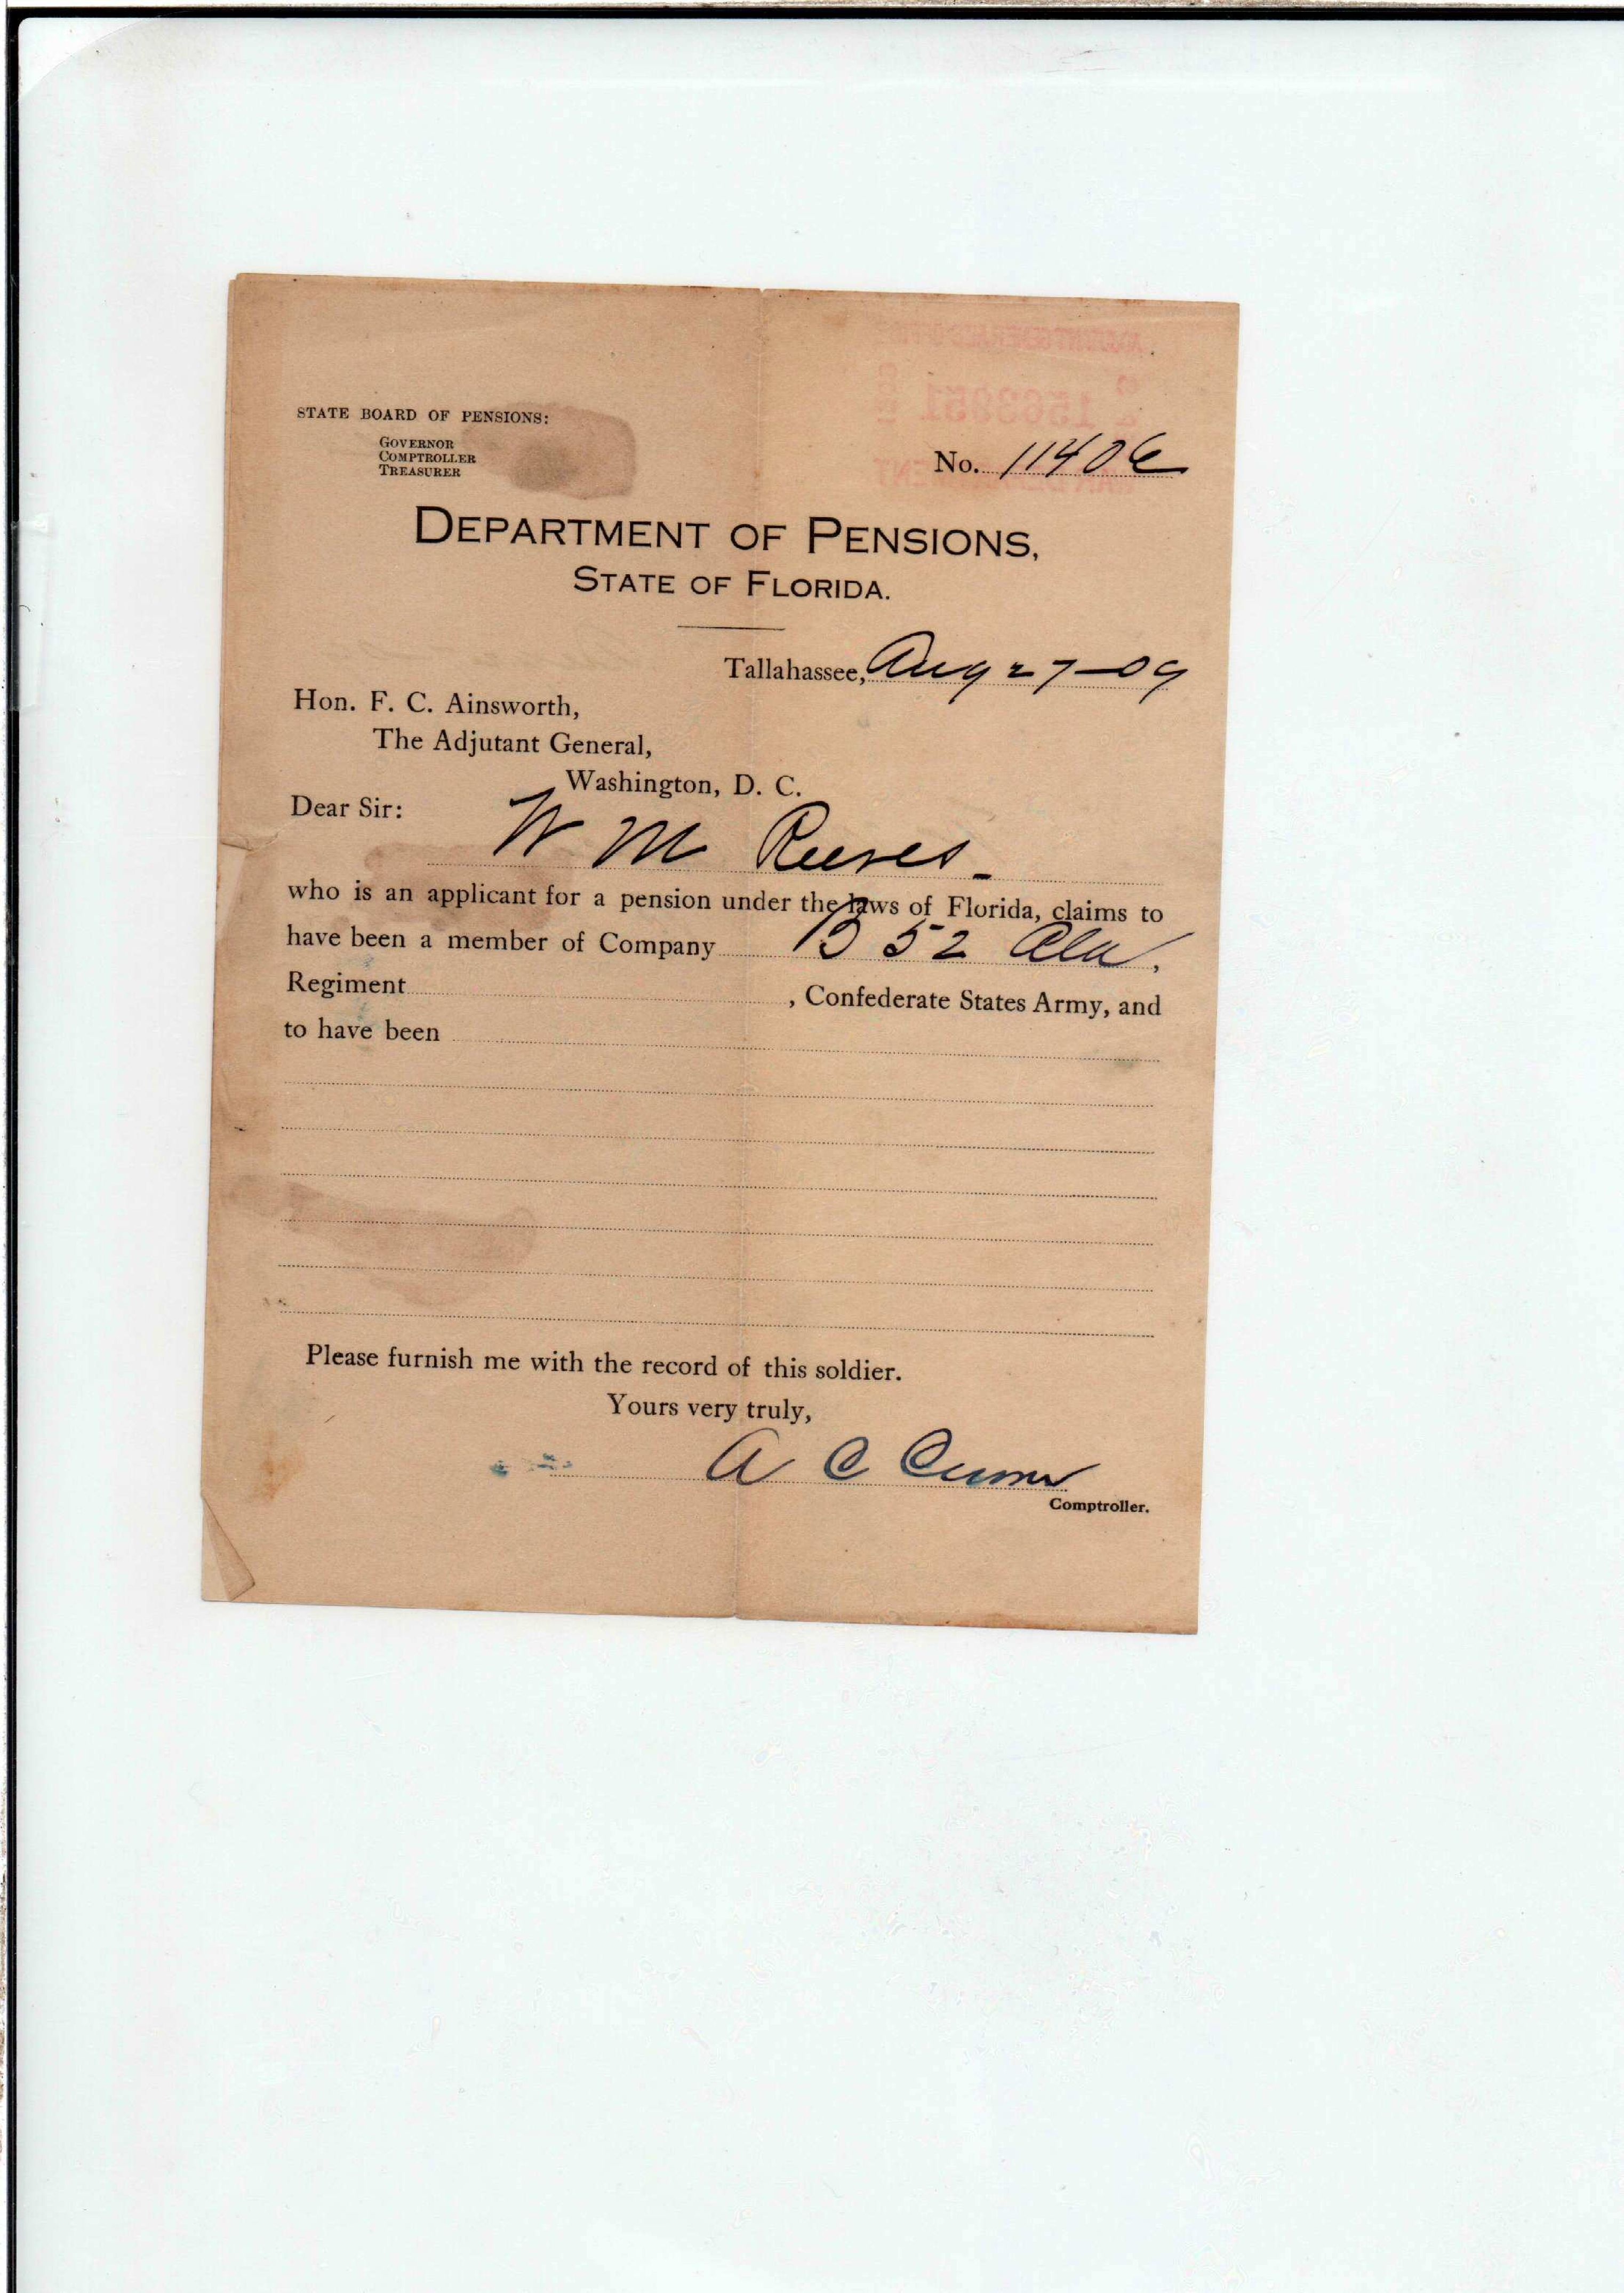 STATE BOARD OF PENSIONS:
GOVERNOR
COMPTROLLER
TREASURER
No. 11406
DEPARTMENT OF PENSIONS,
STATE OF FLORIDA.
Tallahassee, Aug 27-09
Hon. F. C. Ainsworth,
The Adjutant General,
Washington, D. C.
Dear Sir:
W M Reeves
who is an applicant for a pension under the laws of Florida, claims to
have been a member of Company B 52 Ala.
Regiment , Confederate States Army, and
to have been
Please furnish me with the record of this soldier.
Yours very truly,
A C
Comptroller.